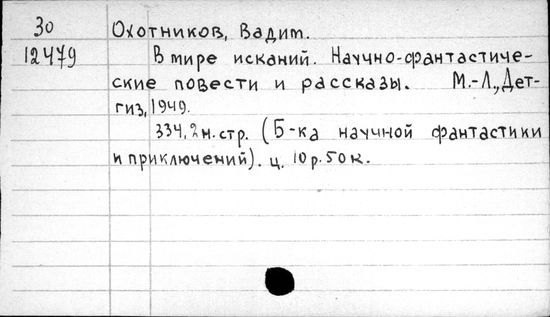 30 Охотников, Вадим.
12479 В мире исканий. Научно-фантастиче-
ские повести и рассказы. М.-Л., Дет-
гиз, 1949.
334, 2 н. стр. (Б-ка научной фантастики
и приключений). ц. 10 р. 50 к.